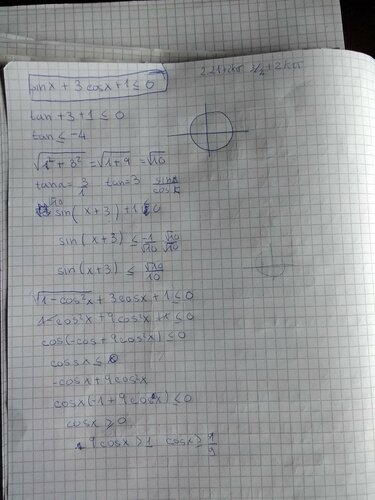 sinx + 3cosx + 1 ≤ 0
tan + 3 + 1 ≤ 0
tan ≤ -4
√1² + 3² = √1 + 9 = √10
tan a = 3/1 tan = 3
√10 sin(x + 3) + 1 ≤ 0
sin(x + 3) ≤ -1/√10 √10/√10
sin(x + 3) ≤ √10/10
√1 - cos²x + 3cosx + 1 ≤ 0
1 - cos²x + 9cos²x + 1 ≤ 0
cos(-cos + 9cos²x) ≤ 0
cosx ≤ 0
-cosx + 9cos²x
cosx(-1 + 9cosx) ≤ 0
cosx ≥ 0
9cosx ≥ 1 cosx ≥ 1/9